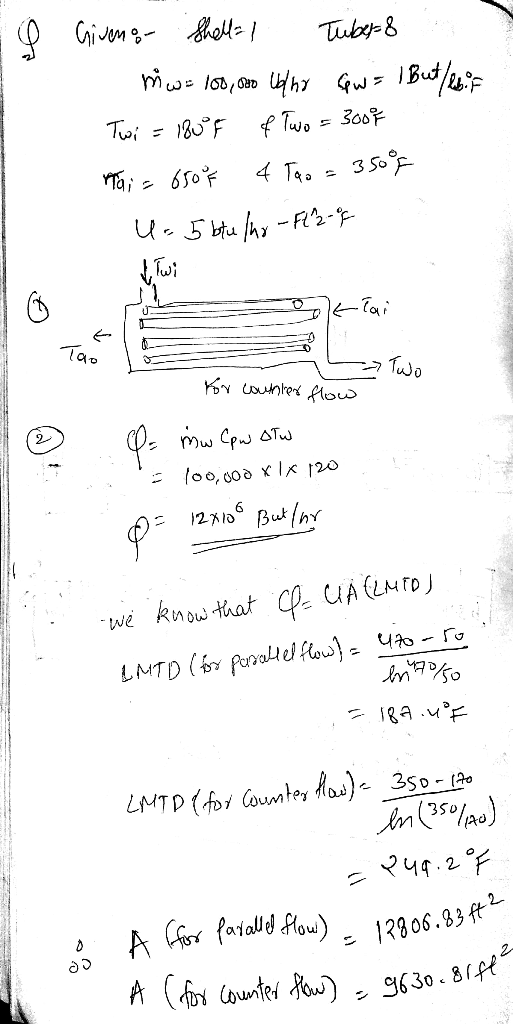 Q Given:- Shell=1 Tubes=8
ṁw= 100,000 lb/hr Cpw = 1 But/lb.°F
Twi = 180°F & Two = 300°F
Tai = 650°F & Tao = 350°F
U = 5 btu/hr-Ft^2-°F
↓Twi
① ←Tai
Tao ←
→ Two
For counter flow
② Q= ṁw Cpw ΔTw
= 100,000 x 1 x 120
Q= 12x10⁶ But/hr
we know that Q= UA(LMTD)
LMTD (for parallel flow) = 470-50 / ln 470/50
= 187.4°F
LMTD (for counter flow) = 350-170 / ln(350/170)
= 249.2°F
∴ A (for parallel flow) = 12806.83 ft²
A (for counter flow) = 9630.81 ft²